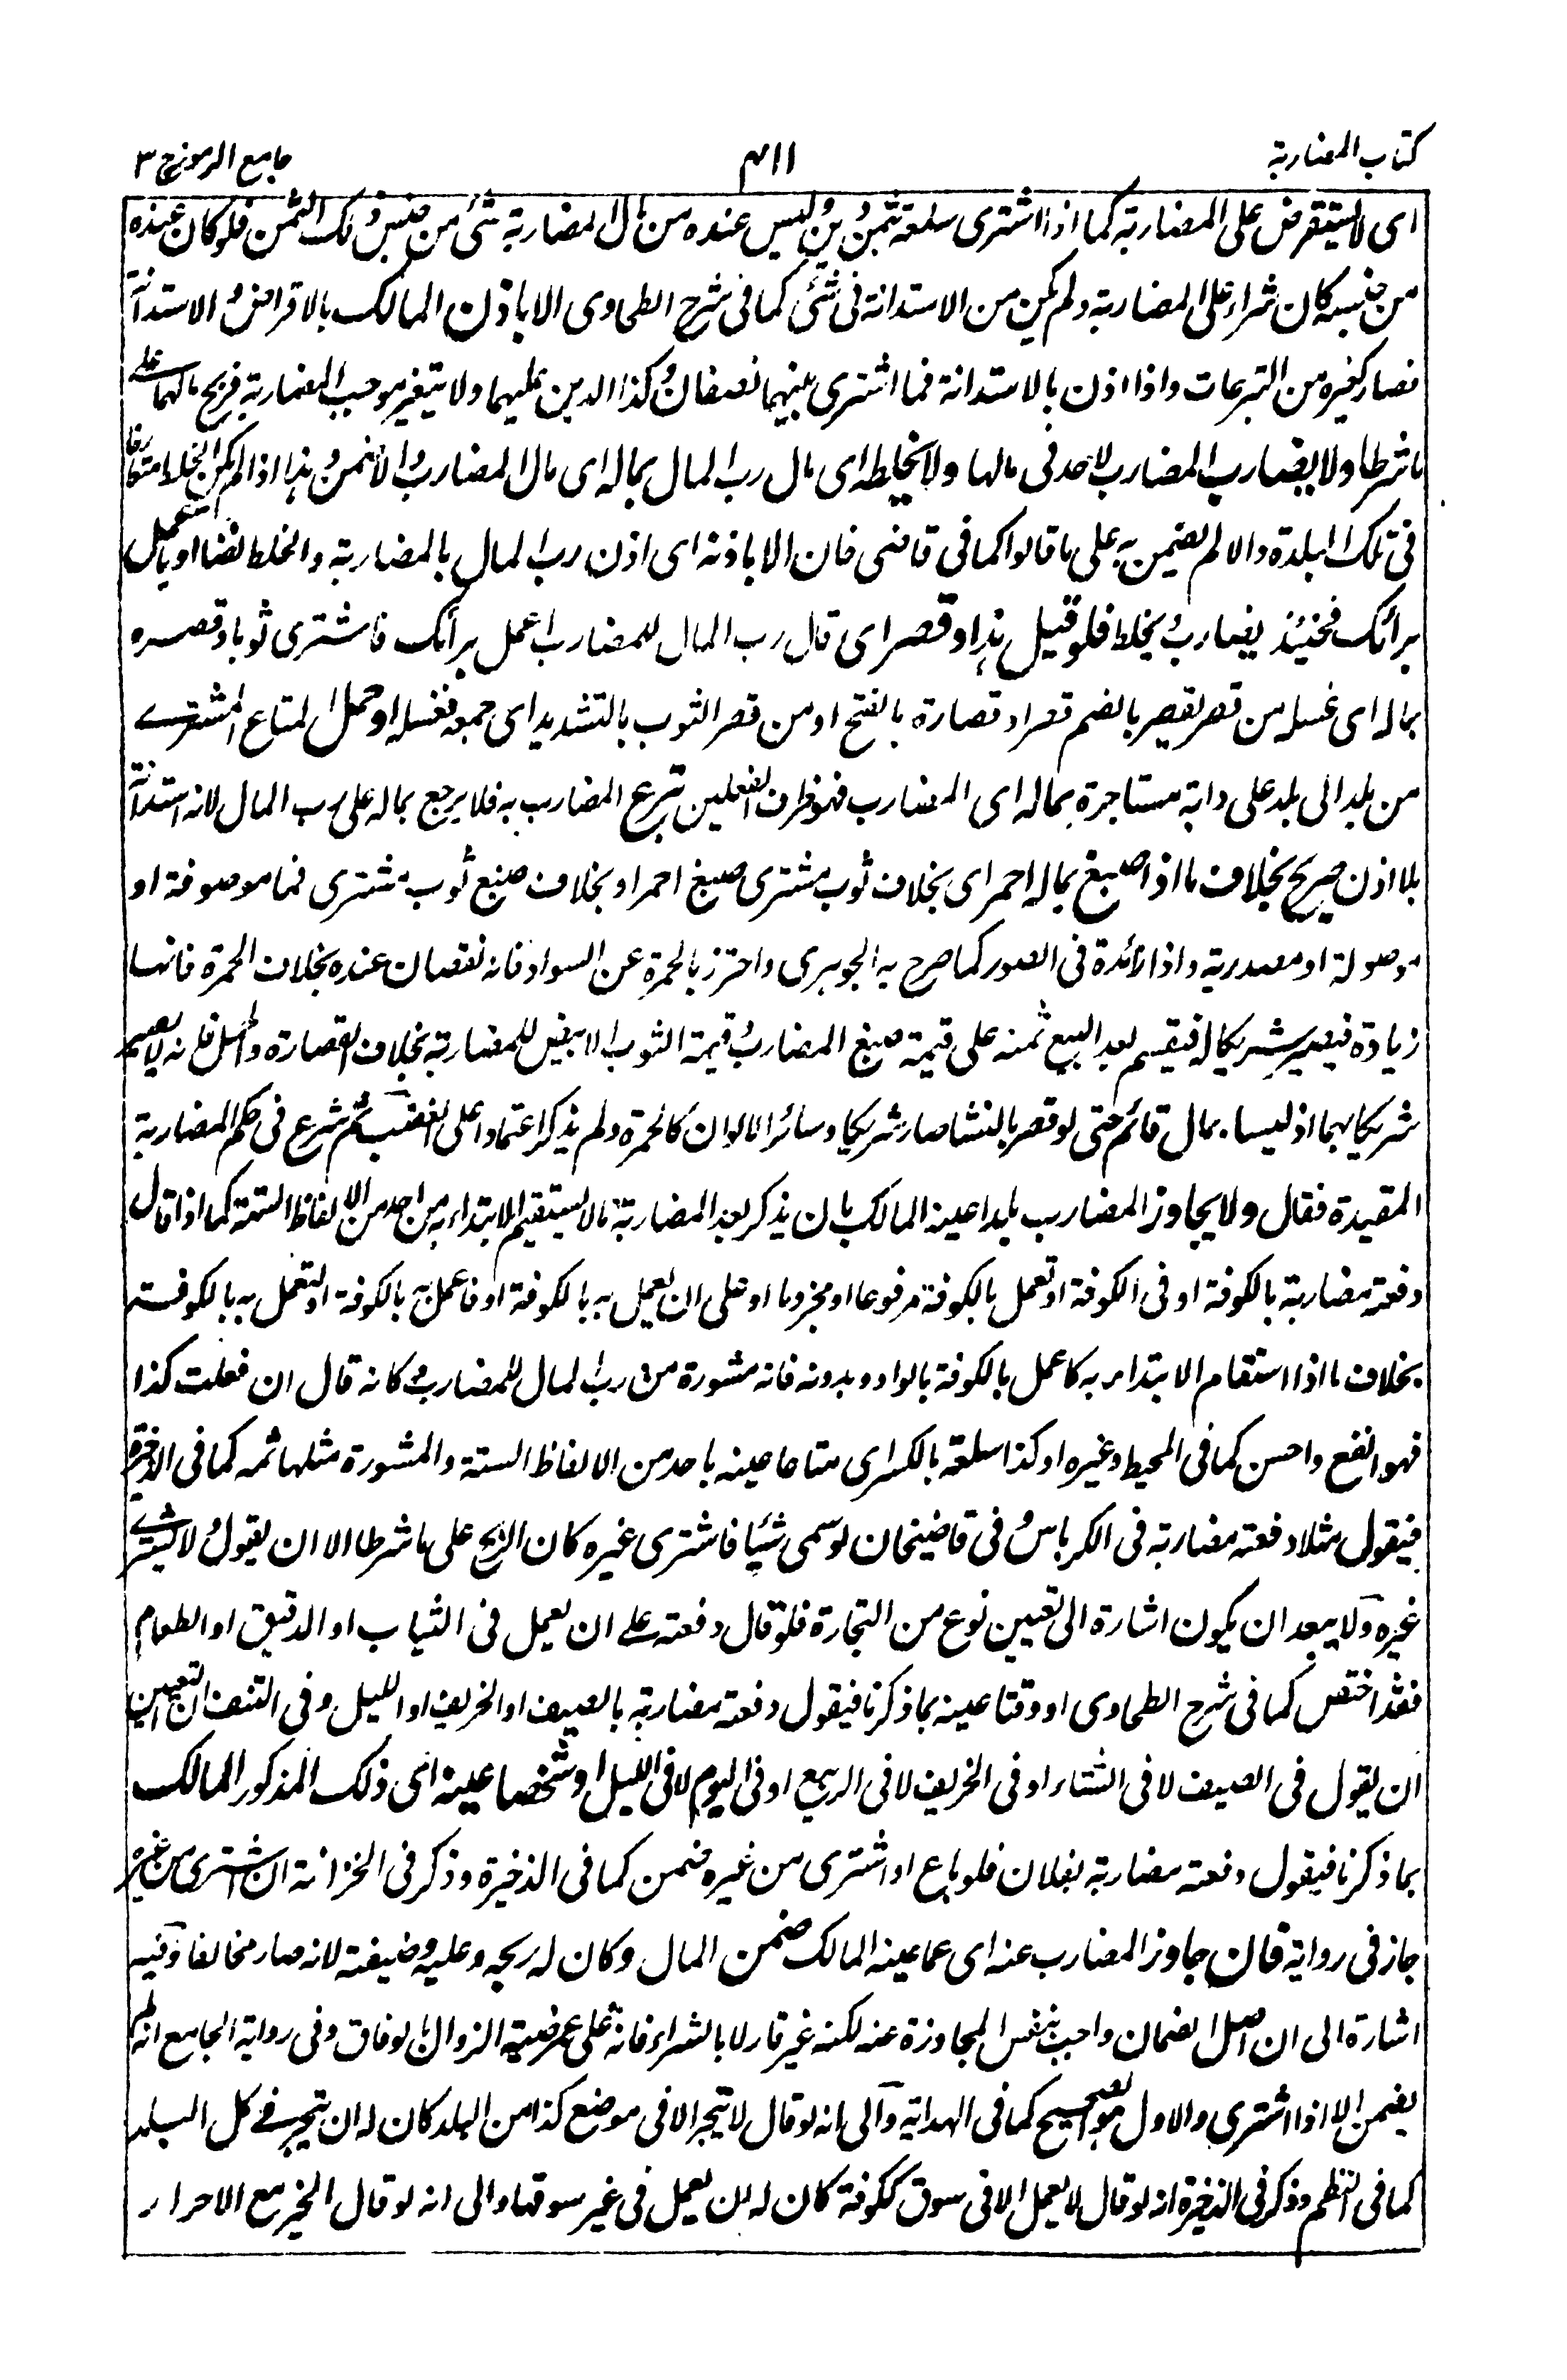 كتاب المضاربة
٤١١
جامع الرموز ج ٣
اى لا يستقرض على المضاربة كما اذا اشترى سلعة بثمن دين وليس عنده من مال المضاربة شئ من جنس ذلك الثمن فلو كان عنده
من جنسه كان شراء على المضاربة ولم يكن من الاستدانة فى شئ كما فى شرح الطحاوى الا باذن المالك بالاقراض والاستدانة
فصار كغيره من التبرعات واذا اذن بالاستدانة فما اشترى بينهما نصفان وكذا الدين عليهما ولا يتغير موجب المضاربة فربح مالهما على
ما شرطا ولا يضارب المضارب لاحد فى مالها ولا يخلطه اى مال رب المال بماله اى مال المضارب والا ضمن وهذا اذا لم يكن الخلط متعارفا
فى تلك البلدة والا لم يضمن به على ما قالوا كما فى قاضى خان الا باذنه اى اذن رب المال بالمضاربة والخلط نصا او باعمل
برائك فحينئذ يضارب ويخلط فلو قيل هذا وقصر اى قال رب المال للمضارب اعمل برائك فاشترى ثوبا وقصره
بماله اى غسله من قصر يقصر بالضم قصرا وقصارة بالفتح او من قصر الثوب بالتشديد اى جمعه فغسله او حمل المتاع المشترى
من بلد الى بلد على دابة مستاجرة بماله اى المضارب فهو ظرف الفعلين تبرع المضارب به فلا يرجع بماله على رب المال لانه استدانة
بلا اذن صريح بخلاف ما اذا صبغ بماله احمر اى بخلاف ثوب مشترى صبغ احمر او بخلاف صبغ ثوب مشترى فما موصوفة او
موصولة او مصدرية واذا زائدة فى الصور كما صرح به الجوهرى واحترز بالحمرة عن السواد فانه نقصان عنده بخلاف الحمرة فانها
زيادة فيصير شريكا له فيقسم بعد البيع ثمنه على قيمة صبغ المضارب وقيمة الثوب الابيض للمضاربة بخلاف القصارة والحمل فانه لا يصير
شريكا بهما اذ ليسا بمال قائم حتى لو قصر بالنشا صار شريكا وسائر الالوان كالحمرة ولم يذكر اعتمادا على الغصب ثم شرع فى حكم المضاربة
المقيدة فقال ولا يجاوز المضارب بلدا عينه المالك بان يذكر بعد المضاربة ما لا يستقيم الابتداء به من احد من الالفاظ الستة كما اذا قال
دفعته مضاربة بالكوفة او فى الكوفة او تعمل بالكوفة مرفوعا او مجزوما او على ان يعمل به بالكوفة او فاعمل به بالكوفة او لتعمل به بالكوفة
بخلاف ما اذا استقام الابتداء به كاعمل بالكوفة بالواو وبدونه فانه مشورة من رب المال للمضارب وكانه قال ان فعلت كذا
فهو انفع واحسن كما فى المحيط وغيره او كذا سلعة بالكسر اى متاعا عينه باحد من الالفاظ الستة والمشورة مثلها ثمه كما فى الذخيرة
فيقول مثلا دفعته مضاربة فى الكرباس وفى قاضيخان لو سمى شيئا فاشترى غيره كان الربح على ما شرطا الا ان يقول ولا يشترى
غيره ولا يبعد ان يكون اشارة الى تعيين نوع من التجارة فلو قال دفعته على ان يعمل فى الثياب او الدقيق او الطعام
فقد اختص كما فى شرح الطحاوى او وقتا عينه بما ذكرنا فيقول دفعته مضاربة بالصيف او الخريف او الليل وفى النتف ان التعيين
ان يقول فى الصيف لا فى الشتاء او فى الخريف لا فى الربيع او فى اليوم لا فى الليل او شخصا عينه اى ذلك المذكور المالك
بما ذكرنا فيقول دفعته مضاربة بفلان فلو باع او اشترى من غيره ضمن كما فى الذخيرة وذكر فى الخزانة ان اشترى من غيره
جاز فى رواية فان جاوز المضارب عنه اى عما عينه المالك ضمن المال وكان له ربحه وعليه وضيعته لانه صار مخالفا وفيه
اشارة الى ان اصل الضمان واجب بنفس المجاوزة عنه لكنه غير قار الا بالشراء فانه على عرضية الزوال بالوفاق وفى رواية الجامع انه لم
يضمن الا اذا اشترى والاول هو الصحيح كما فى الهداية والى انه لو قال لا تتجر الا فى موضع كذا من البلد كان له ان يتجر فى كل البلد
كما فى النظم وذكر فى الذخيرة انه لو قال لا يعمل الا فى سوق ككوفة كان له ان يعمل فى غير سوقها والى انه لو قال اتجر مع الاحرار